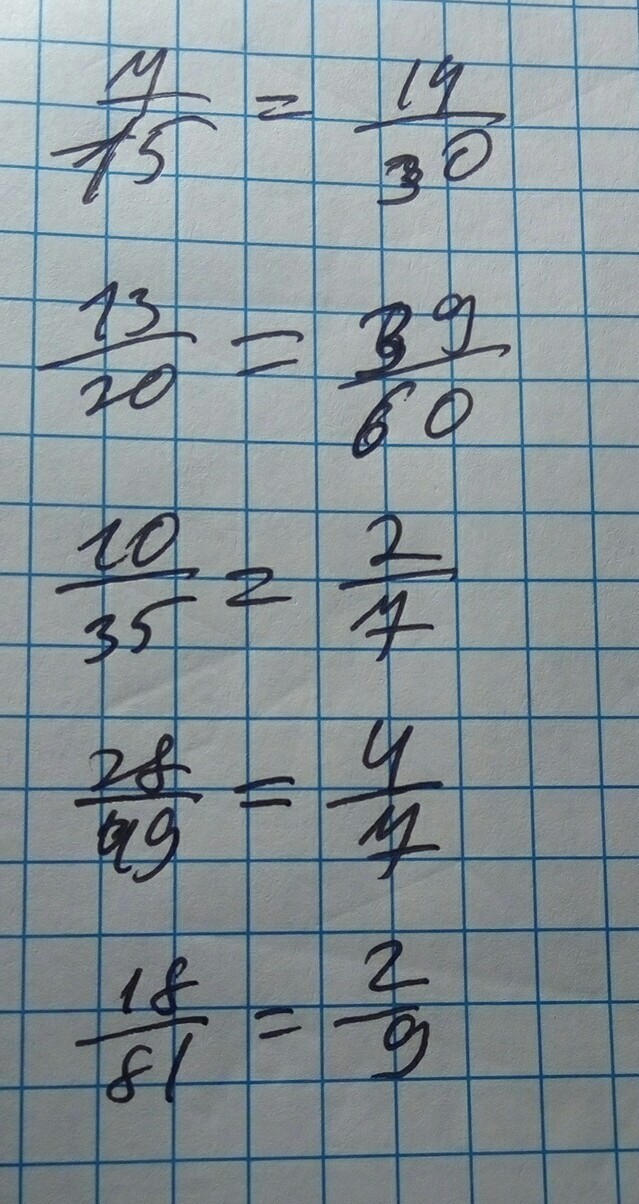 7/15 = 14/30
13/20 = 39/60
10/35 = 2/7
28/49 = 4/7
18/81 = 2/9